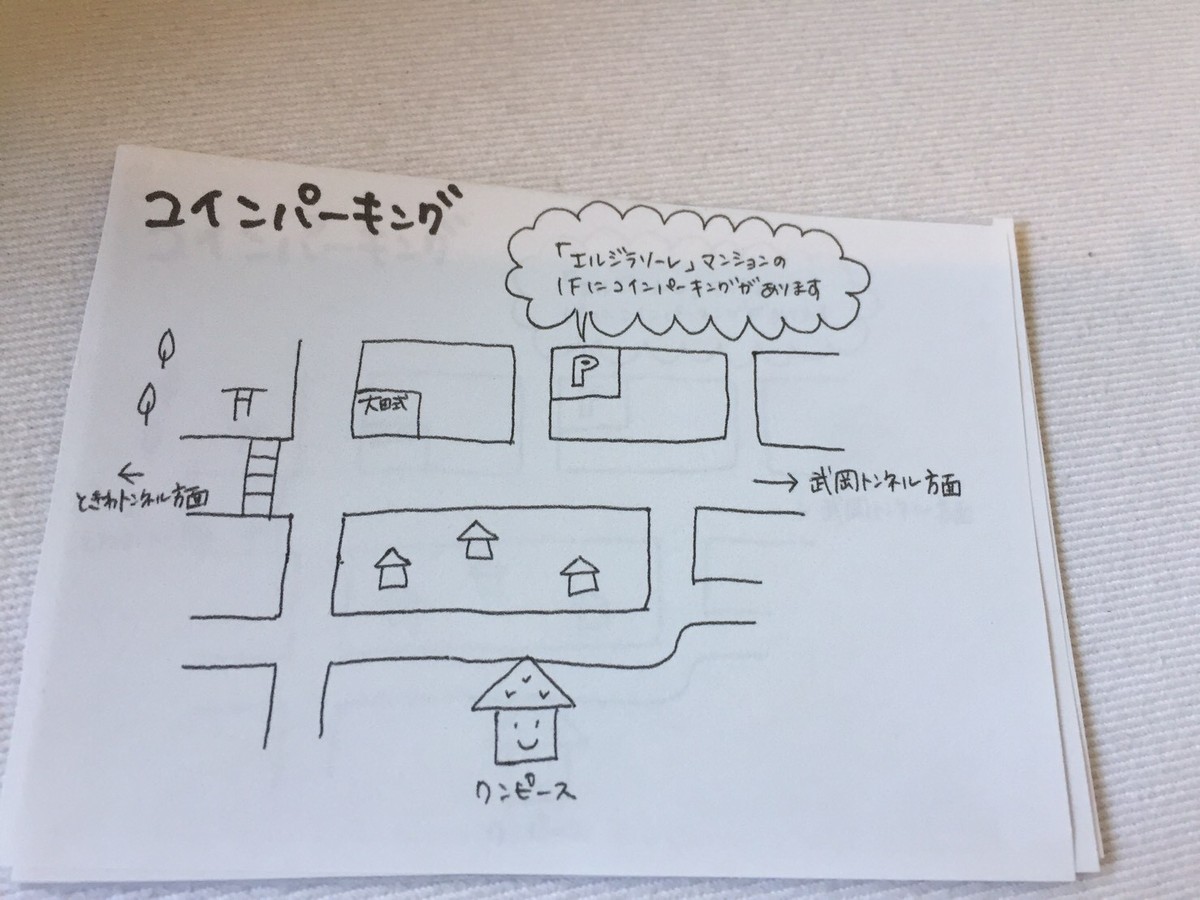 コインパーキング
「エルジラソーレ」マンションの
1Fにコインパーキングがあります
P
大田式
←
ときわトンネル方面
→ 武岡トンネル方面
ワンピース